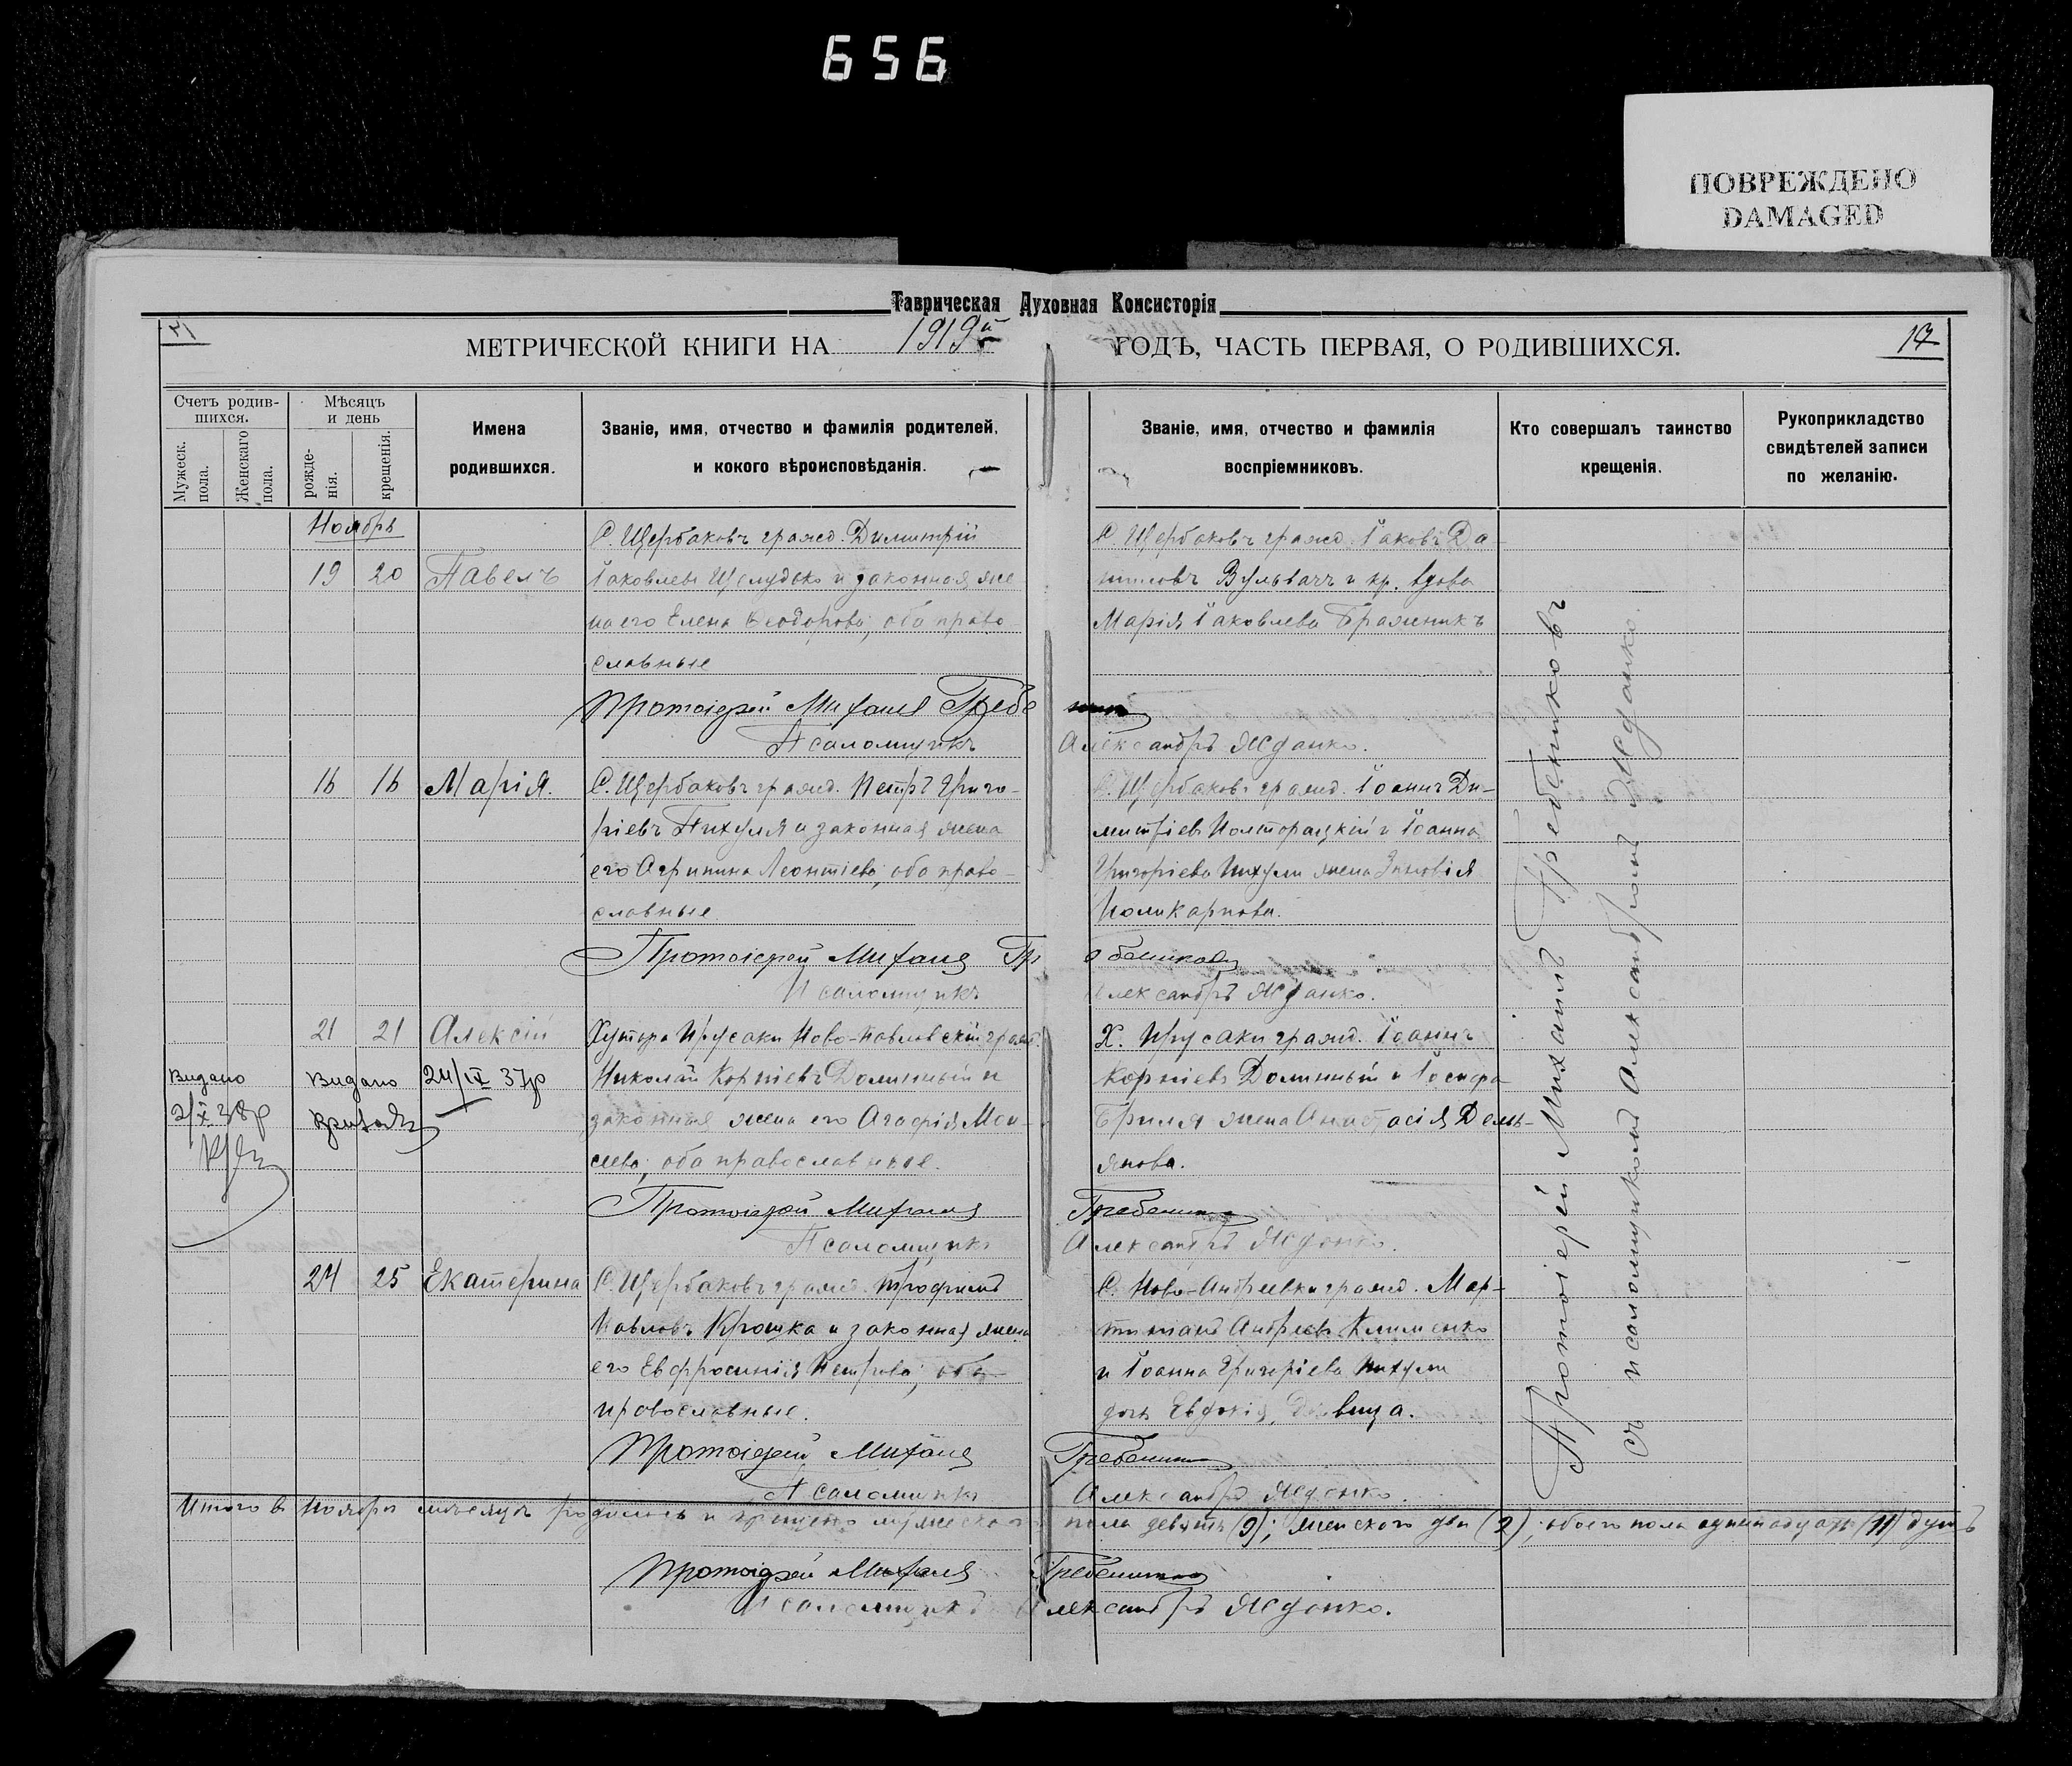 656
ПОВРЕЖДЕНО
DAMAGED
Таврическая Духовная Консисторія
МЕТРИЧЕСКОЙ КНИГИ НА 1919й ГОДЪ, ЧАСТЬ ПЕРВАЯ, О РОДИВШИХСЯ.
Счетъ родив-
шихся.
Мужеск.
пола.
Женскаго
пола.
Мѣсяцъ
и день
рожде-
нія.
крещенія.
Имена
родившихся.
Званіе, имя, отчество и фамилія родителей,
и кокого вѣроисповѣданія.
Званіе, имя, отчество и фамилія
воспріемниковъ.
Кто совершалъ таинство
крещенія.
Рукоприкладство
свидѣтелей записи
по желанію.
Ноябрь
19 20 Павелъ
С. Щербаковъ гражд. Димитрій
Іаковлевъ и законная же-
на его Елена Ѳеодорова, оба право-
славные
С. Щербаковъ гражд. Іаковъ Да-
ниловъ и кр. вдова
Марія Іаковлева Бражникъ
Протоіерей Михаилъ
Псаломщикъ Александръ Жданко.
16 16 Марія.
С. Щербаковъ гражд. Петръ Григо-
ріевъ Пихуля и законная жена
его Агрипина Леонтіева, оба право-
славные
С. Щербаковъ гражд. Іоаннъ Ди-
митріевъ Полторацкій и Іоанна
Григоріева Пихули жена Зиновія
Поликарпова.
Протоіерей Михаилъ Гребениковъ
Псаломщикъ Александръ Жданко.
21 21 Алексій
Хутора Прусаки Ново-Павловскій гражд.
Николай Корніевъ Долинный и
законная жена его Агафія Мои-
сеева, оба православные.
Х. Прусаки гражд. Іоаннъ
Корніевъ Долинный и Іосифа
жена Анастасія Демь-
янова.
Видано
Видано 24/IX 37р
Протоіерей Михаилъ Гребениковъ
Псаломщикъ Александръ Жданко.
24 25 Екатерина
С. Щербаковъ гражд. Трофимъ
Павловъ Крошка и законная жена
его Евфросинія Петрова, оба
православные.
С. Ново-Андреевки гражд. Мар-
тиніанъ Андреевъ Клименко
и Іоанна Григоріева Пихули
дочь Евдокія, девица.
Протоіерей Михаилъ Гребениковъ
Псаломщикъ Александръ Жданко.
Итого в Ноябре месяце родилось и крещено мужеского пола девять (9); женского две (2); обоего пола одиннадцать (11) душъ
Протоіерей Михаилъ Гребениковъ
Псаломщикъ Александръ Жданко.
Протоіерей Михаилъ Гребениковъ
съ псаломщикомъ Александромъ Жданко